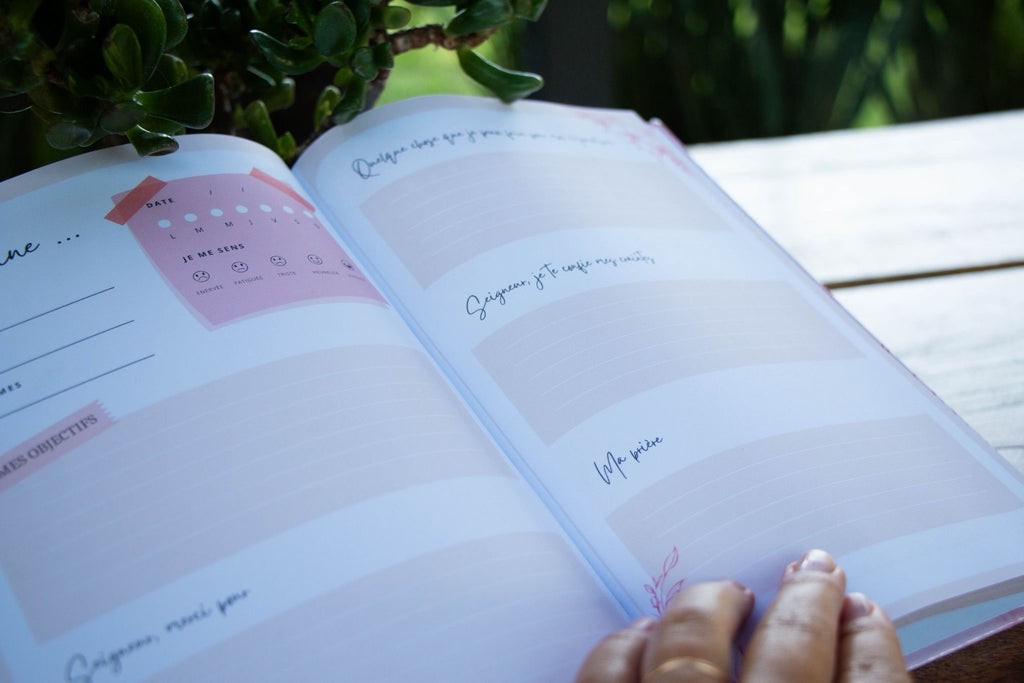 ne ...
DATE / /
L M M J V S S
JE ME SENS
ENERVÉE FATIGUÉE TRISTE HEUREUSE
MES
MES OBJECTIFS
Seigneur, merci pour
Quelque chose que je peux
Seigneur, je te confie mes
Ma prière